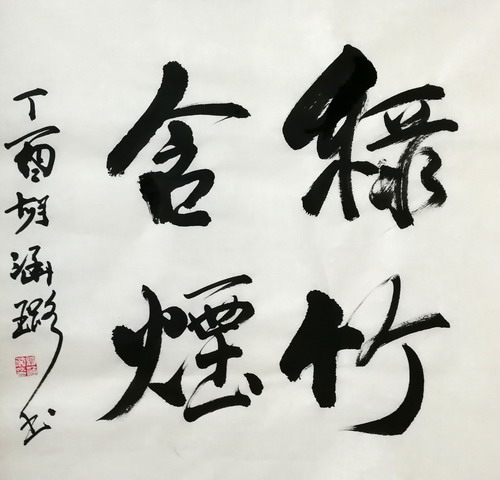 綠竹
含煙
丁酉胡涵璐书